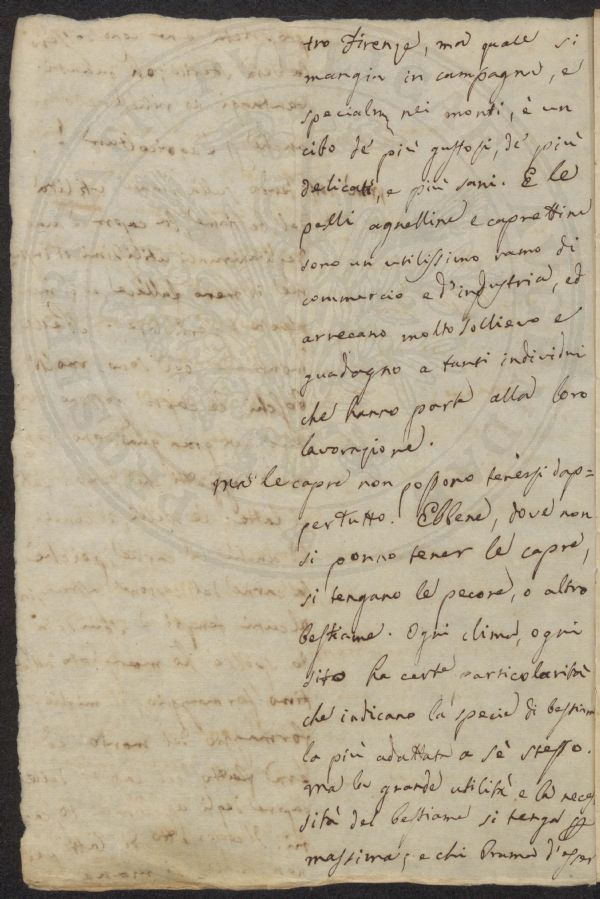 tro Firenze, ma quale si
mangia in campagna, e
specialm nei monti, è un
cibo de' più gustosi, de' più
delicati, e più sani. E le
pelli agnelline e caprettine
sono un utilissimo ramo di
commercio e d'industria, ed
arrecano molto sollievo e
guadagno a tanti individui
che hanno parte alla loro
lavorazione.
Ma le capre non possono tenersi dap=
pertutto. Ebbene, dove non
si ponno tener le capre,
si tengano le pecore, o altro
bestiame. Ogni clima, ogni
sito ha certe particolarità
che indicano la specie di bestiam
la più adattata a sè stesso.
Ma la grande utilità e la neces
sità del bestiame si tenga
massima; e chi brama d'esser